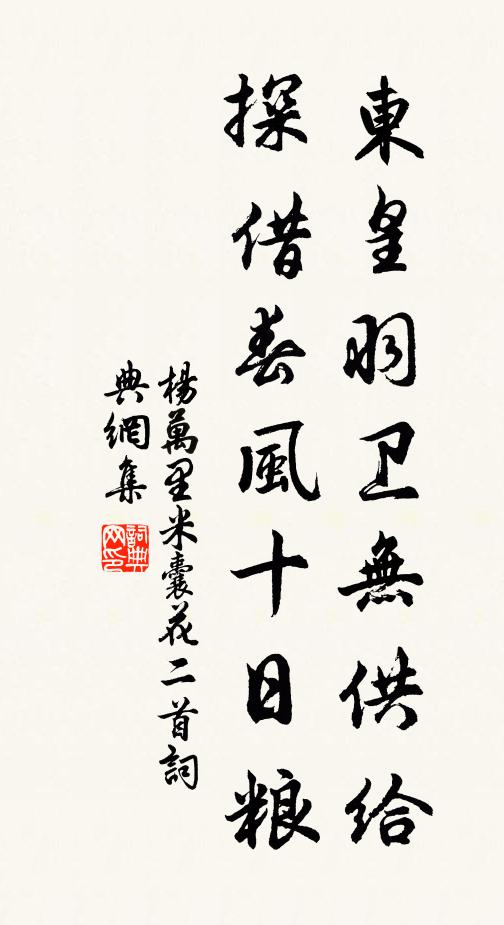 東皇羽卫無供給
探借春風十日粮
楊萬里米囊花二首詞
典網集
詞典网印